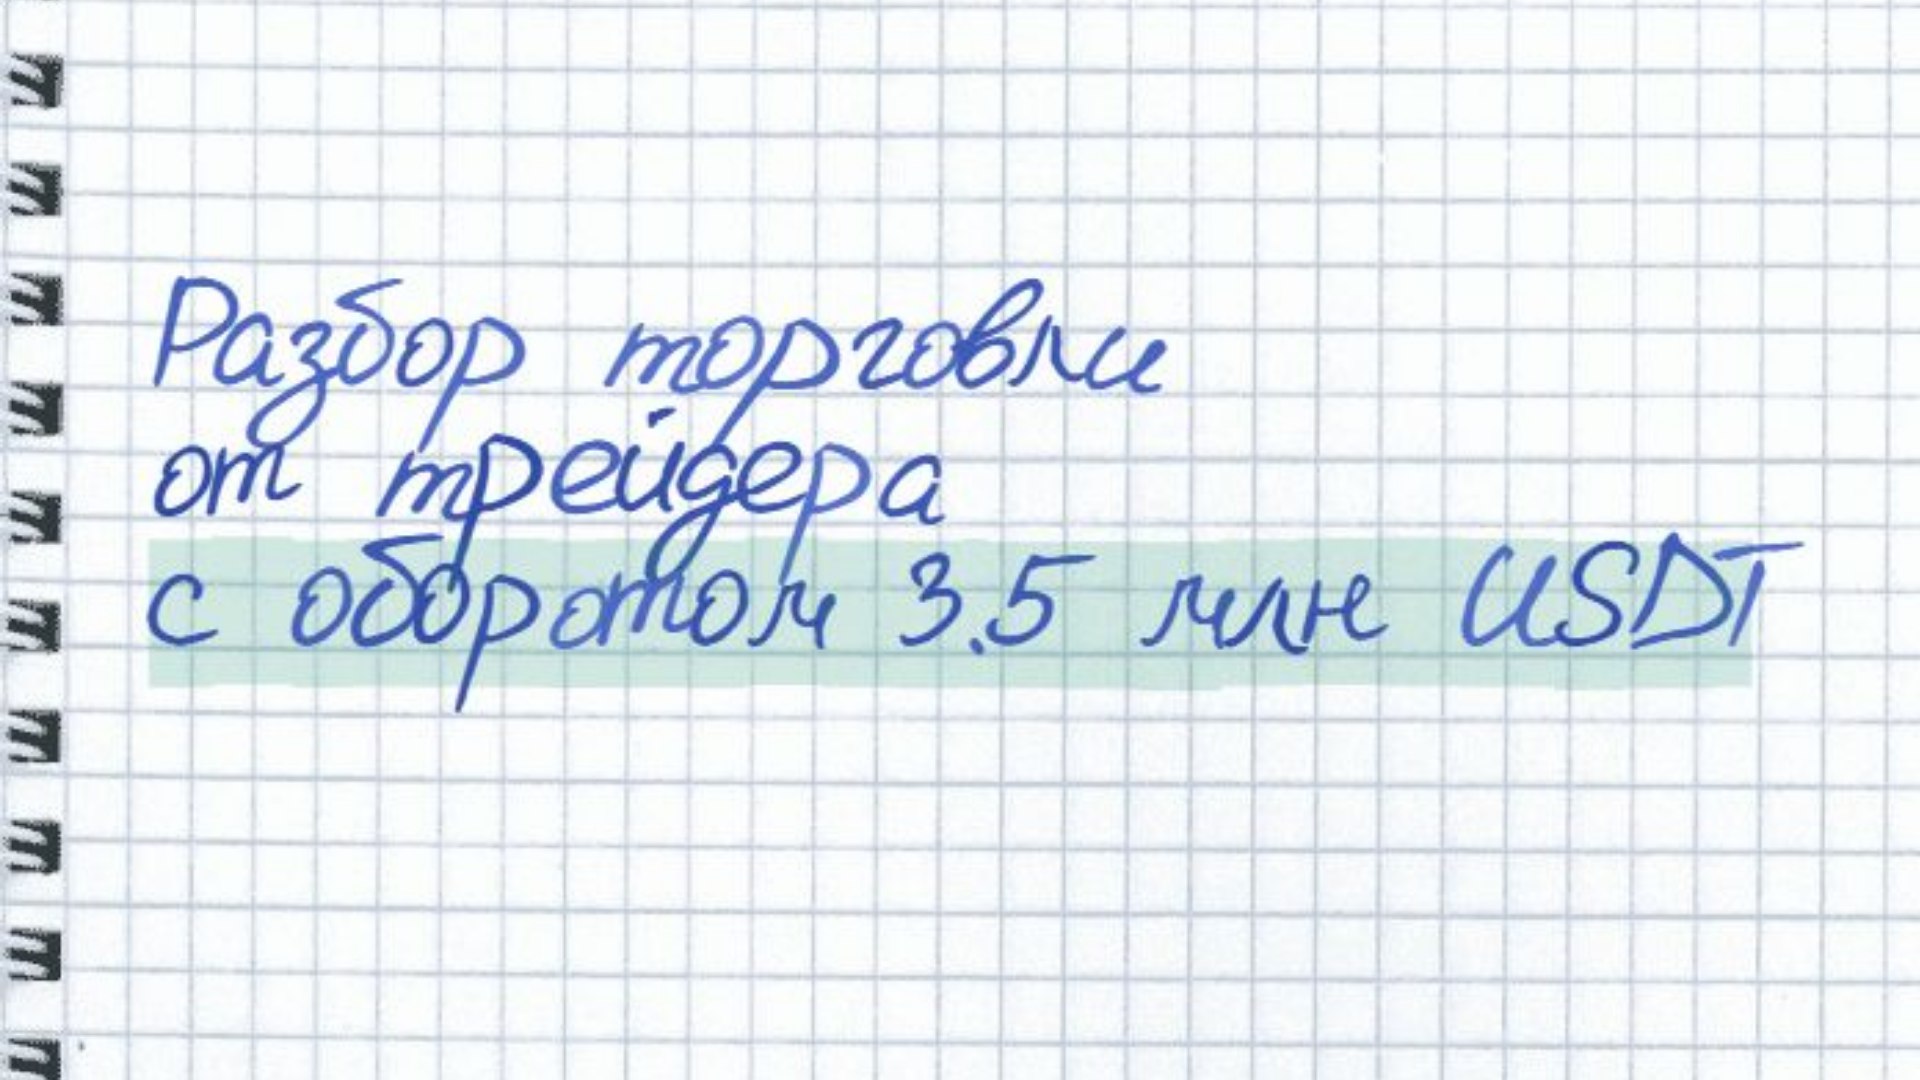 Разбор торговли
от трейдера
с оборотом 3.5 млн USDT